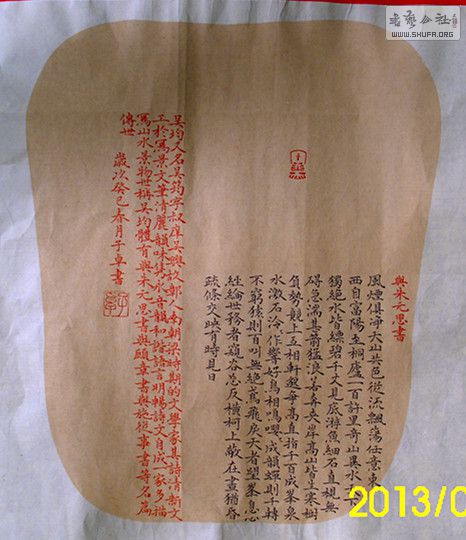 與朱元思書
風煙俱淨天山共色從流飄蕩任意東
西自富陽至桐廬一百許里奇山異水天下
獨絕水皆縹碧千丈見底游魚細石直視無
礙急湍甚箭猛浪若奔夾岸高山皆生寒樹
負勢競上互相軒邈爭高直指千百成峯泉
水激石泠作響好鳥相鳴嚶成韻蟬則千轉
不窮猿則百叫無絕鳶飛戾天者望峯息心
經綸世務者窺谷忘反橫柯上蔽在晝猶昏
疏條交映有時見日
吳均又名吳筠字叔庠吳興故鄣人南朝梁時期的文學家其詩清新文
工於寫景文筆清麗韻味雋永音韻和諧語言明暢詩文自成一家多描
寫山水景物世稱吳均體有與朱元思書與顧章書與施從事書等名篇
傳世 歲次癸巳春月于卓書
WWW.SHUFA.ORG
2013/0